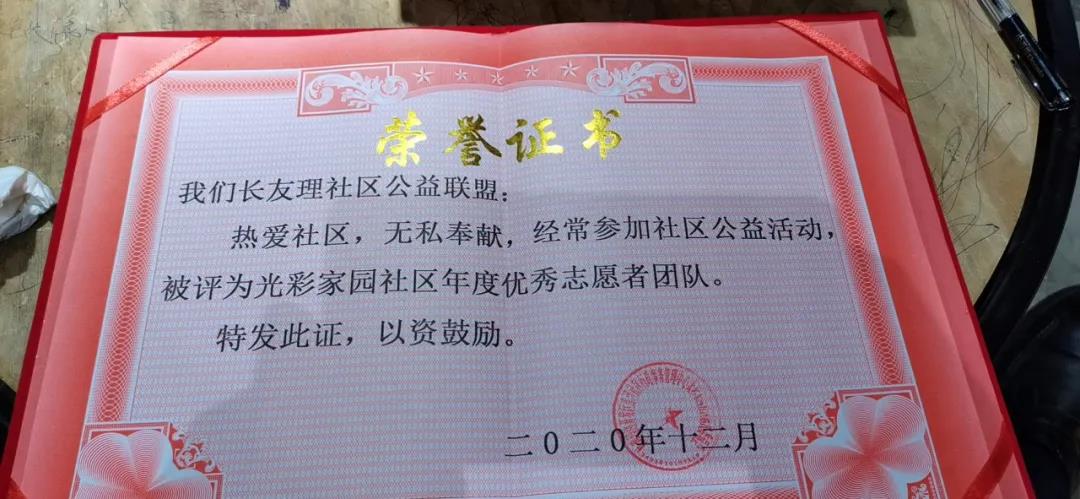 荣誉证书
我们长友理社区公益联盟：
热爱社区，无私奉献，经常参加社区公益活动，
被评为光彩家园社区年度优秀志愿者团队。
特发此证，以资鼓励。
二〇二〇年十二月